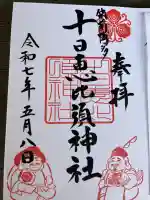 奉拝
十日恵比須神社
令和七年五月八日